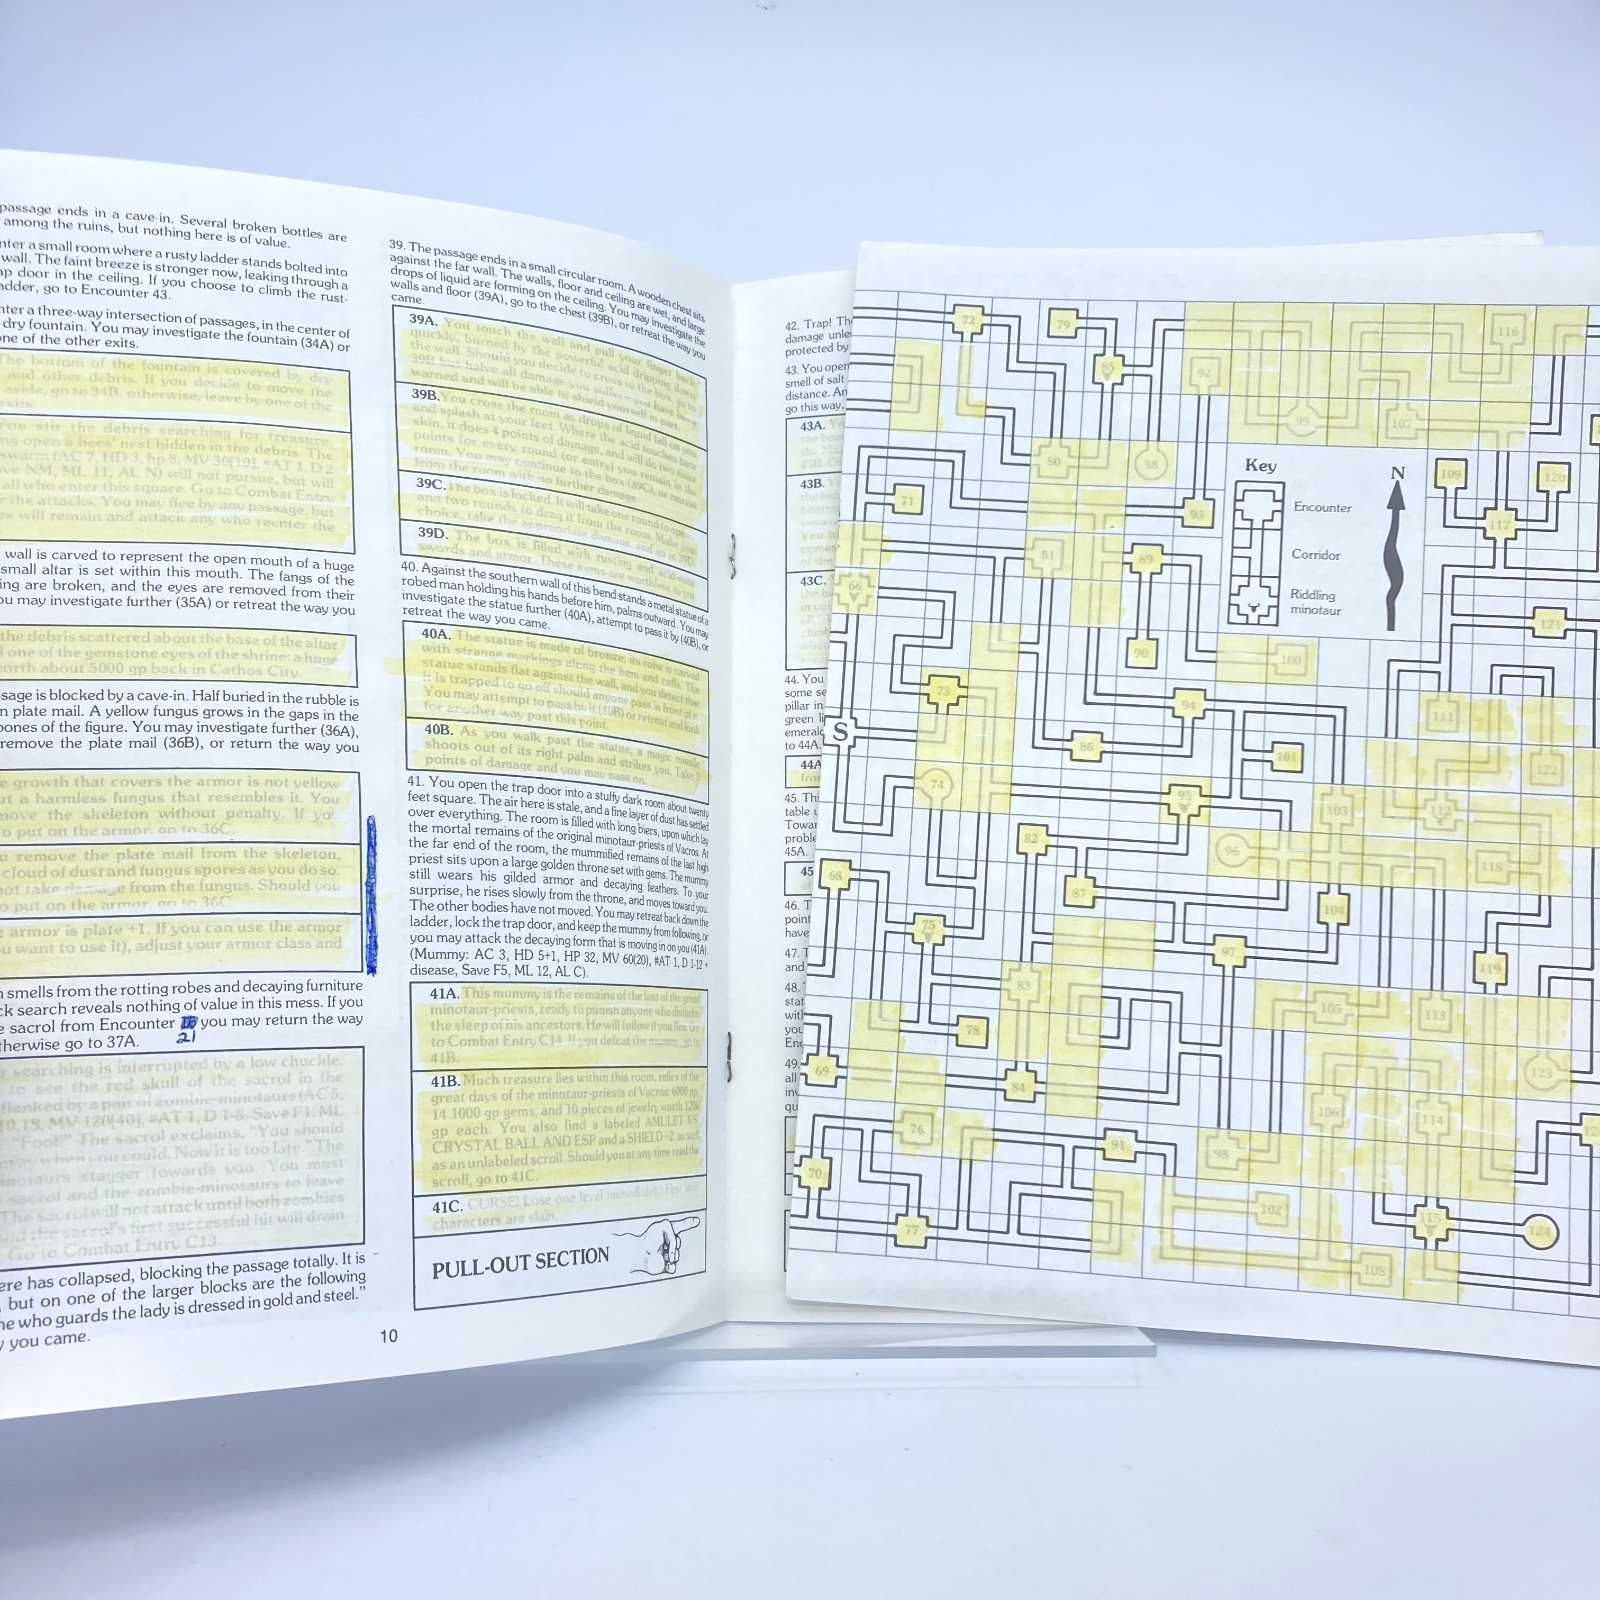 passage ends in a cave-in. Several broken bottles are
among the ruins, but nothing here is of value.
nter a small room where a rusty ladder stands bolted into
wall. The faint breeze is stronger now, leaking through a
ap door in the ceiling. If you choose to climb the rust-
adder, go to Encounter 43.
nter a three-way intersection of passages, in the center of
dry fountain. You may investigate the fountain (34A) or
one of the other exits.
The bottom of the fountain is covered by dry
and other debris. If you decide to move the
aside, go to 34B, otherwise, leave by one of the
exits.
You stir the debris searching for treasure,
ng open a bees' nest hidden in the debris. The
swarm (AC 7, HD 3, hp 8, MV 30[10], #AT 1, D 2
ve NM, ML 11, AL N) will not pursue, but will
all who enter this square. Go to Combat Entry
r the attacks. You may flee by any passage, but
es will remain and attack any who reenter the
wall is carved to represent the open mouth of a huge
small altar is set within this mouth. The fangs of the
ing are broken, and the eyes are removed from their
ou may investigate further (35A) or retreat the way you
the debris scattered about the base of the altar
l one of the gemstone eyes of the shrine: a huge
worth about 5000 gp back in Cathos City
ssage is blocked by a cave-in. Half buried in the rubble is
n plate mail. A yellow fungus grows in the gaps in the
bones of the figure. You may investigate further (36A),
remove the plate mail (36B), or return the way you
e growth that covers the armor is not yellow
ut a harmless fungus that resembles it. You
move the skeleton without penalty. If you
o put on the armor, go to 36C.
u remove the plate mail from the skeleton,
cloud of dust and fungus spores as you do so.
not take damage from the fungus. Should you
o put on the armor, go to 36C
e armor is plate +1. If you can use the armor
u want to use it), adjust your armor class and
n smells from the rotting robes and decaying furniture
ck search reveals nothing of value in this mess. If you
e sacrol from Encounter you may return the way
21
therwise go to 37A.
r searching is interrupted by a low chuckle.
to see the red skull of the sacrol in the
flanked by a pair of zombie-minotaurs (AC 5,
MV 120[40], #AT 1, D 1-8, Save F1, ML
"Fool!" The sacrol exclaims. "You should
when you could. Now it is too late." The
inotaurs stagger towards you. You must
sacrol and the zombie-minotaurs to leave
The sacrol will not attack until both zombies
nd the sacrol's first successful hit will drain
Go to Combat Entry C13.
ere has collapsed, blocking the passage totally. It is
, but on one of the larger blocks are the following
ne who guards the lady is dressed in gold and steel."
y you came.
10
39. The passage ends in a small circular room. A wooden chest sits
against the far wall. The walls, floor and ceiling are wet, and large
drops of liquid are forming on the ceiling. You may investigate the
walls and floor (39A), go to the chest (39B), or retreat the way you
came.
39A. You touch the wall and pull your finger back
quickly, burned by the powerful acid dripping down
the wall. Should you decide to cross to the box, go to
39B but halve all damage you suffer—you have been
warned and will be able to shield yourself in part.
39B. You cross the room as drops of liquid fall on you
and splash at your feet. Where the acid touches bare
skin, it does 4 points of damage, and will do two more
points for every round (or entry) you remain in the
room. You may continue to the box (39C), or retreat
from the room with no further damage.
39C. The box is locked. It will take one round to open
and two rounds to drag it from the room. Make your
choice, take the appropriate damage, and go to 39D.
39D. The box is filled with rusting and acid-eaten
swords and armor. These items are worthless to you
40. Against the southern wall of this bend stands a metal statue of a
robed man holding his hands before him, palms outward. You may
investigate the statue further (40A), attempt to pass by (40B), or
retreat the way you came.
40A. The statue is made of bronze; its robe is carved
with strange markings along the hem and cuffs. The
statue stands flat against the wall, and you detect that
it is trapped to go off should anyone pass in front of it
You may attempt to pass by it (40B) or retreat and look
for another way past this point.
40B. As you walk past the statue, a magic missile
shoots out of its right palm and strikes you. Take 3
points of damage and you may pass on.
41. You open the trap door into a stuffy dark room about twenty
feet square. The air here is stale, and a fine layer of dust has settled
over everything. The room is filled with long biers, upon which lay
the mortal remains of the original minotaur-priests of Vacros. At
the far end of the room, the mummified remains of the last high
priest sits upon a large golden throne set with gems. The mummy
still wears his gilded armor and decaying feathers. To your
surprise, he rises slowly from the throne, and moves toward you.
The other bodies have not moved. You may retreat back down the
ladder, lock the trap door, and keep the mummy from following, or
you may attack the decaying form that is moving in on you (41A).
(Mummy: AC 3, HD 5+1, HP 32, MV 60(20), #AT 1, D 1-12 +
disease, Save F5, ML 12, AL C).
41A. This mummy is the remains of the last of the great
minotaur-priests, ready to punish anyone who disturbs
the sleep of his ancestors. He will follow if you flee. Go
to Combat Entry C14. If you defeat the mummy, go to
41B.
41B. Much treasure lies within this room, relics of the
great days of the minotaur-priests of Vacros: 6000 pp,
14 1000 gp gems, and 10 pieces of jewelry worth 1200
gp each. You also find a labeled AMULET VS.
CRYSTAL BALL AND ESP and a SHIELD +2, as well
as an unlabeled scroll. Should you at any time read the
scroll, go to 41C.
41C. CURSE! Lose one level immediately! First level
characters are slain.
PULL-OUT SECTION
42. Trap! Th
damage unle
protected by
43. You open
smell of salt
distance. An
go this way,
43A.
43B.
43C.
44. You
some se
pillar in
green li
emerald
to 44A.
44A
45. Thi
table u
Towar
proble
45A.
45
46. T
point
have
47. T
and
48.
stat
with
you
Enc
49.
all
inv
qu
72
79
116
85
92
99
107
80
88
109
120
71
93
117
81
89
66
90
121
100
73
94
111
S
86
101
122
74
95
103
112
82
96
118
68
87
104
75
97
119
83
105
113
78
69
84
123
106
114
76
91
98
70
102
77
115
124
108
Key
Encounter
Corridor
Riddling
minotaur
N